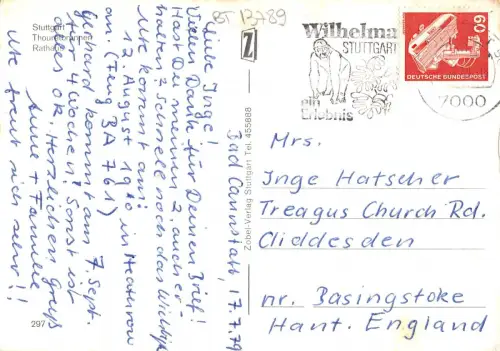 BT 13789
Stuttgart
Thouretbrunnen
Rathaus
297
Bad Cannstatt, 17.7.79
Liebe Inge!
Vielen Dank für Deinen Brief!
Hast Du meinen 2. auch er-
halten? Schnell noch das Wichtigste
Ute kommt am:
12. August 1910 in Heathrow
an. (Flug BA 761)
Gerhard kommt am 7. Sept.
für 4 Wochen! Sonst ist
alles ok. Herzlichen Gruß
Anne + Familie
Ute freut sich sehr!!
Z
Zobel-Verlag Stuttgart Tel. 455888
Wilhelma
STUTTGART
ein
Erlebnis
60
DEUTSCHE BUNDESPOST
7000
Mrs.
Inge Hatscher
Treagus Church Rd.
Cliddesden
nr. Basingstoke
Hant. England